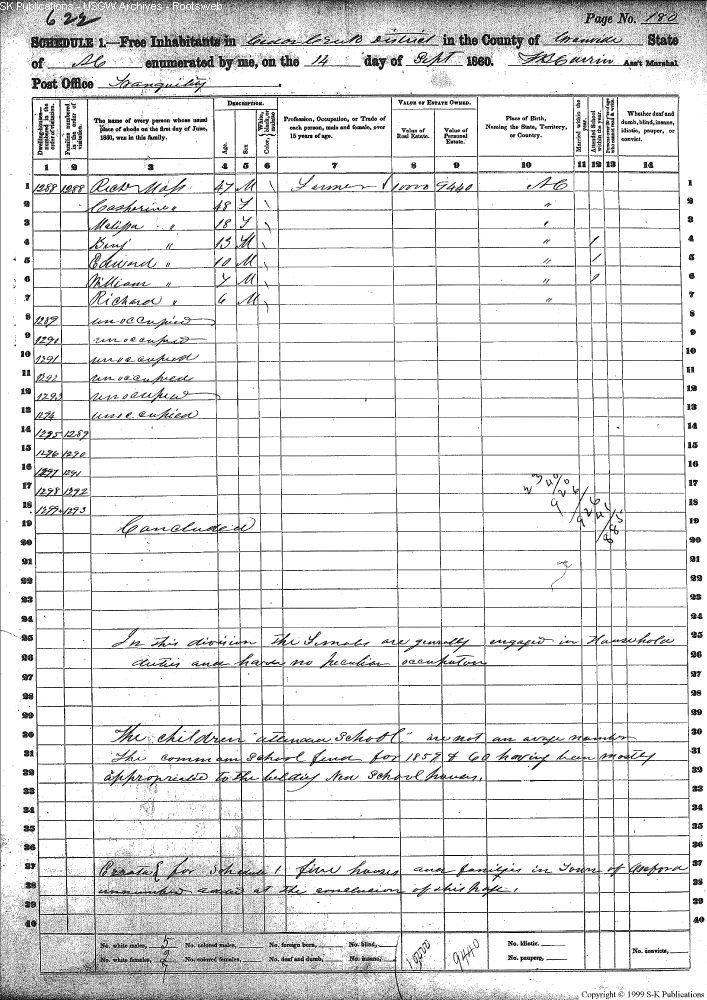 SK Publications - USGW Archives - Rootsweb
622
Page No. 180
SCHEDULE 1.—Free Inhabitants in District in the County of Granville State
of NC enumerated by me, on the 14 day of Sept 1860. Ass't Marshal.
Post Office Tranquility
Dwelling-houses numbered in the order of visitation.
Families numbered in the order of visitation.
The name of every person whose usual place of abode on the first day of June, 1860, was in this family.
DESCRIPTION.
Age.
Sex
Color, White, black, or mulatto
Profession, Occupation, or Trade of each person, male and female, over 15 years of age.
VALUE OF ESTATE OWNED.
Value of Real Estate.
Value of Personal Estate.
Place of Birth, Naming the State, Territory, or Country.
Married within the year.
Attended School within the year.
Whether deaf and dumb, blind, insane, idiotic, pauper, or convict.
1 2 3 4 5 6 7 8 9 10 11 12 13 14
1 1288 1288 Richd Moss 47 M \ Farmer 10000 9440 NC 1
2 Catherine " 48 F \ " 2
3 Melissa " 18 F \ " 3
4 Benj " 13 M \ " / 4
5 Edward " 10 M \ " / 5
6 William " 7 M \ " / 6
7 Richard " 6 M \ " 7
8 1289 unoccupied 8
9 1290 unoccupied 9
10 1291 unoccupied 10
11 1292 unoccupied 11
12 1293 unoccupied 12
13 1294 unoccupied 13
14 1295 1289 14
15 1296 1290 15
16 1297 1291 16
17 1298 1292 17
18 1299 1293 18
19 Concluded 19
20 20
21 21
22 22
23 23
24 24
25 In this division the Females are generally engaged in Household 25
26 duties and no peculiar occupation 26
27 27
28 28
29 29
30 The children "attended School" are not an average number 30
31 The common School fund for 1859 & 60 having been mostly 31
32 appropriated to the building New School houses. 32
33 33
34 34
35 35
36 36
37 Errata for Schedule 1 five houses and families in Town of Oxford 37
38 unnumbered added at the conclusion of this page. 38
39 39
40 40
No. white males, 5 No. colored males, No. foreign born, No. blind, 10000 9440 No. idiotic. No. convicts,
No. white females, 2 No. colored females, No. deaf and dumb, No. insane, No. paupers,
Copyright © 1999 S-K Publications